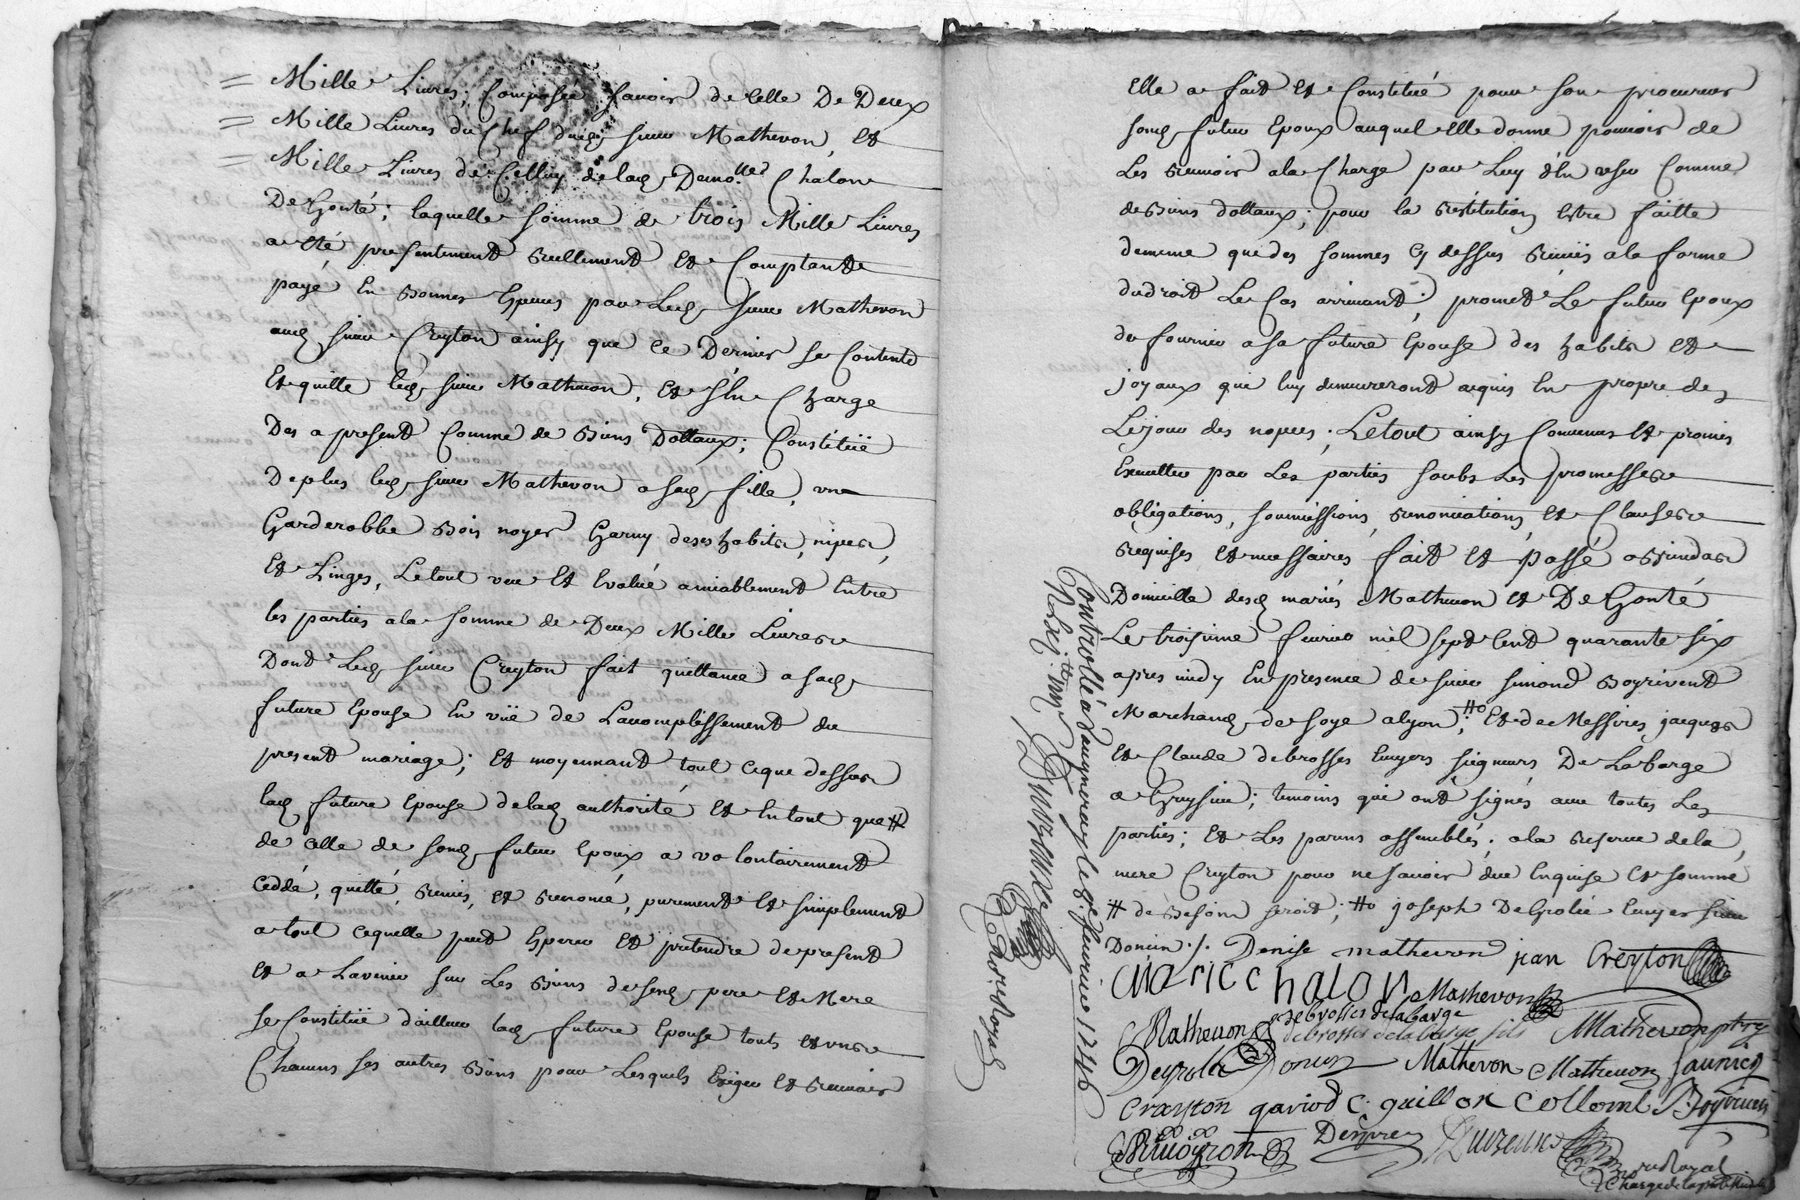 Mille Livres, Composée savoir de Celle De Deux
Mille Livres du Chef dudj sieur Mathevon, et
Mille Livres de Celluy de ladj Demo.lle Chalon
De Gonté; laquelle somme de trois Mille Livres
a eté presentement reellement et Comptant
payé En Bonnes Especes par Ledj sieur Mathevon
audj sieur Creyton ainsy que Ce Dernier se Contente
Et quitte ledj sieur Mathevon, et s'En Charge
Des a present Comme de Biens Dottaux; Constituë
De plus ledj sieur Mathevon a sadj fille, une
Garderobbe Bois noyer Garny de ses habits, nipes,
Et Linges, Le tout veu Et Evalué amiablement Entre
les parties a la somme de Deux Mille Livres
Dont Ledj sieur Creyton fait quittance a sadj
future Epouse En vüe de Lacomplissement du
present mariage; Et moyennant tout Ce que dessus
ladj future Epouse de ladj authorité Et En tant que #
de Celle de sondj futur Epoux a volontairement
Ceddé, quitté, remis, et renoncé, purement et simplement
a tout Ce quelle peut Esperer Et pretendre de present
Et a Lavenir sur Les Biens de sesdj pere et Mere
se Constituë d'ailleur ladj future Epouse touts et uns
Chacuns ses autres Biens pour Lesquels Exiger et recevoir
Elle a fait et Constitué pour son procureur
sondj futur Epoux auquel elle donne pouvoir de
Les recevoir a la Charge par Luy d'En user Comme
de Biens dottaux; pour la restitution Estre faitte
de meme que des sommes Cy dessus reçües a la forme
du droit Le Cas arrivant; promet Le futur Epoux
de fournir a sa future Epouse des habits et
joyaux qui luy demeureront acquis En propre des
Le jour des nopces; Le tout ainsy Convenu et promis
Executter par Les parties soubs Les promesses
obligations, soumissions, renonciations, et Clauses
requises et necessaires fait et passé a Brindas
Domicille desdj mariés Mathevon et De Gonté
Le troisieme fevrier mil sept Cent quarante six
apres midy En presence de sieur Simond Boyrivent
Marchand de soye a lyon; #o Et de Messires jacques
et Claude debrosses Ecuyers seigneurs De Labarge
temoins qui ont signés avec toutes Les
parties; et Les parens assemblés; a la reserve de la
mere Creyton pour ne savoir de ce Enquise et sommé
# de Besoin seroit; #o joseph De Enquyer sieur
Doncin ./. Denise mathevon jean Creyton
Marie Chalon Mathevon
Mathevon debrosses delabarge
debrosses de labarge fils Mathevon ptre
Doncin Mathevon Mathevon
Crayton gariod C. guillon Collomb Boyrivent
Despres
Controllé a Vaugneray le 8e fevrier 1746